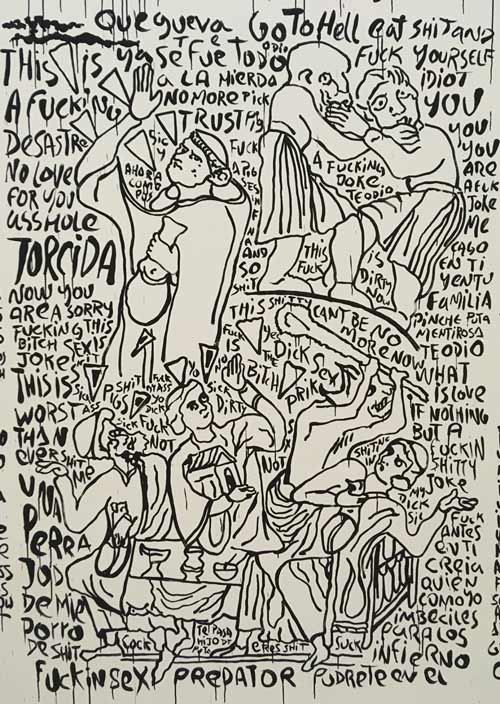 Que gueva Go To Hell eat SHIT AND
THIS is ya Se Fue TODO FUCK YOURSELF
ODIO
A FUCKING
a LA MIERDA
IDIOT
NO MORE PICK
YOU
DESASTRE
TRUST
YOU
NO LOVE
SICY
FUCK
YOU
FOR YOU
AHORA
A PIG
ARE
assHole
COMO
A FUCKING
A FUCK
JOKE
JOKE
TORCIDA
TEODIO
ME
AND
CAGO
SO
THIS
IS
EN TI
NOW YOU
SHIT
FUCK
DIRTY
Y EN TU
NOW
FAMILIA
ARE A SORRY
THIS SHITTY CANT BE NO
PINCHE PUTA
FUCKING THIS
MORE NOW
MENTIROSA
BITCH SEX IS
FUCK
DICK SEX
TEODIO
JOKE SHIT
IS
WHAT
THIS IS
BITCH
is Love
SICK
PIGS
SHIT
DIRTY
PRIK
IF NOTHING
WORST
ASS
DICK
BUT A
THAN
SICK
FUCK
SHITING
FUCKIN
EVER SHIT
NOT
NOT
IN
SHITTY
ME
JOKE
UNA
MY
FUCK
DICK
ANTES
PERRA
SIC
EN TI
JOD
CREIA
QUIEN
DE MIA
COMO YO
PORRO
IMBECILES
DE SHIT
COCK
TE PASA
ERES SHIT
SUCK
PARA LOS
HIJO DE
PUTA
INFIERNO
FUCKIN SEX PREDATOR PUDRETE EN EL